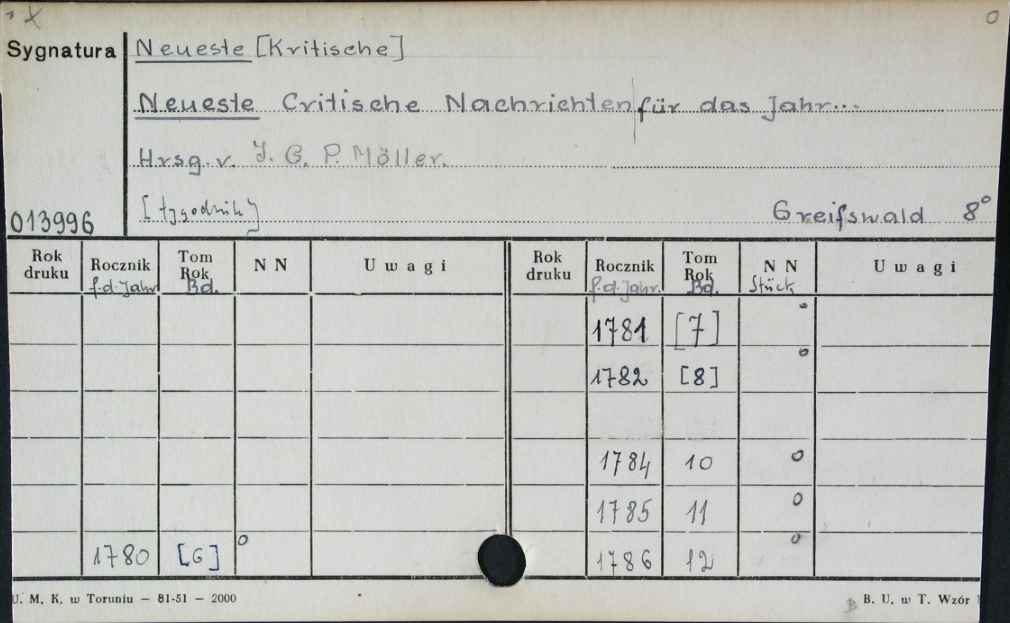 X
O
Sygnatura
Neueste [Kritische]
Neueste Critische Nachrichten für das Jahr...
Hrsg. v. J. G. P. Möller.
013996
[tygodnik]
Greifswald 8°
Rok druku Rocznik f.d. Jahr Tom Rok Bd. N N Uwagi Rok druku Rocznik f.d. Jahr. Tom Rok Bd. N N Stück Uwagi
1781 [7] °
1782 [8] °
1784 10 °
1785 11 °
1780 [6] ° 1786 12 °
U. M. K. w Toruniu — 81-51 — 2000
B. U. w T. Wzór